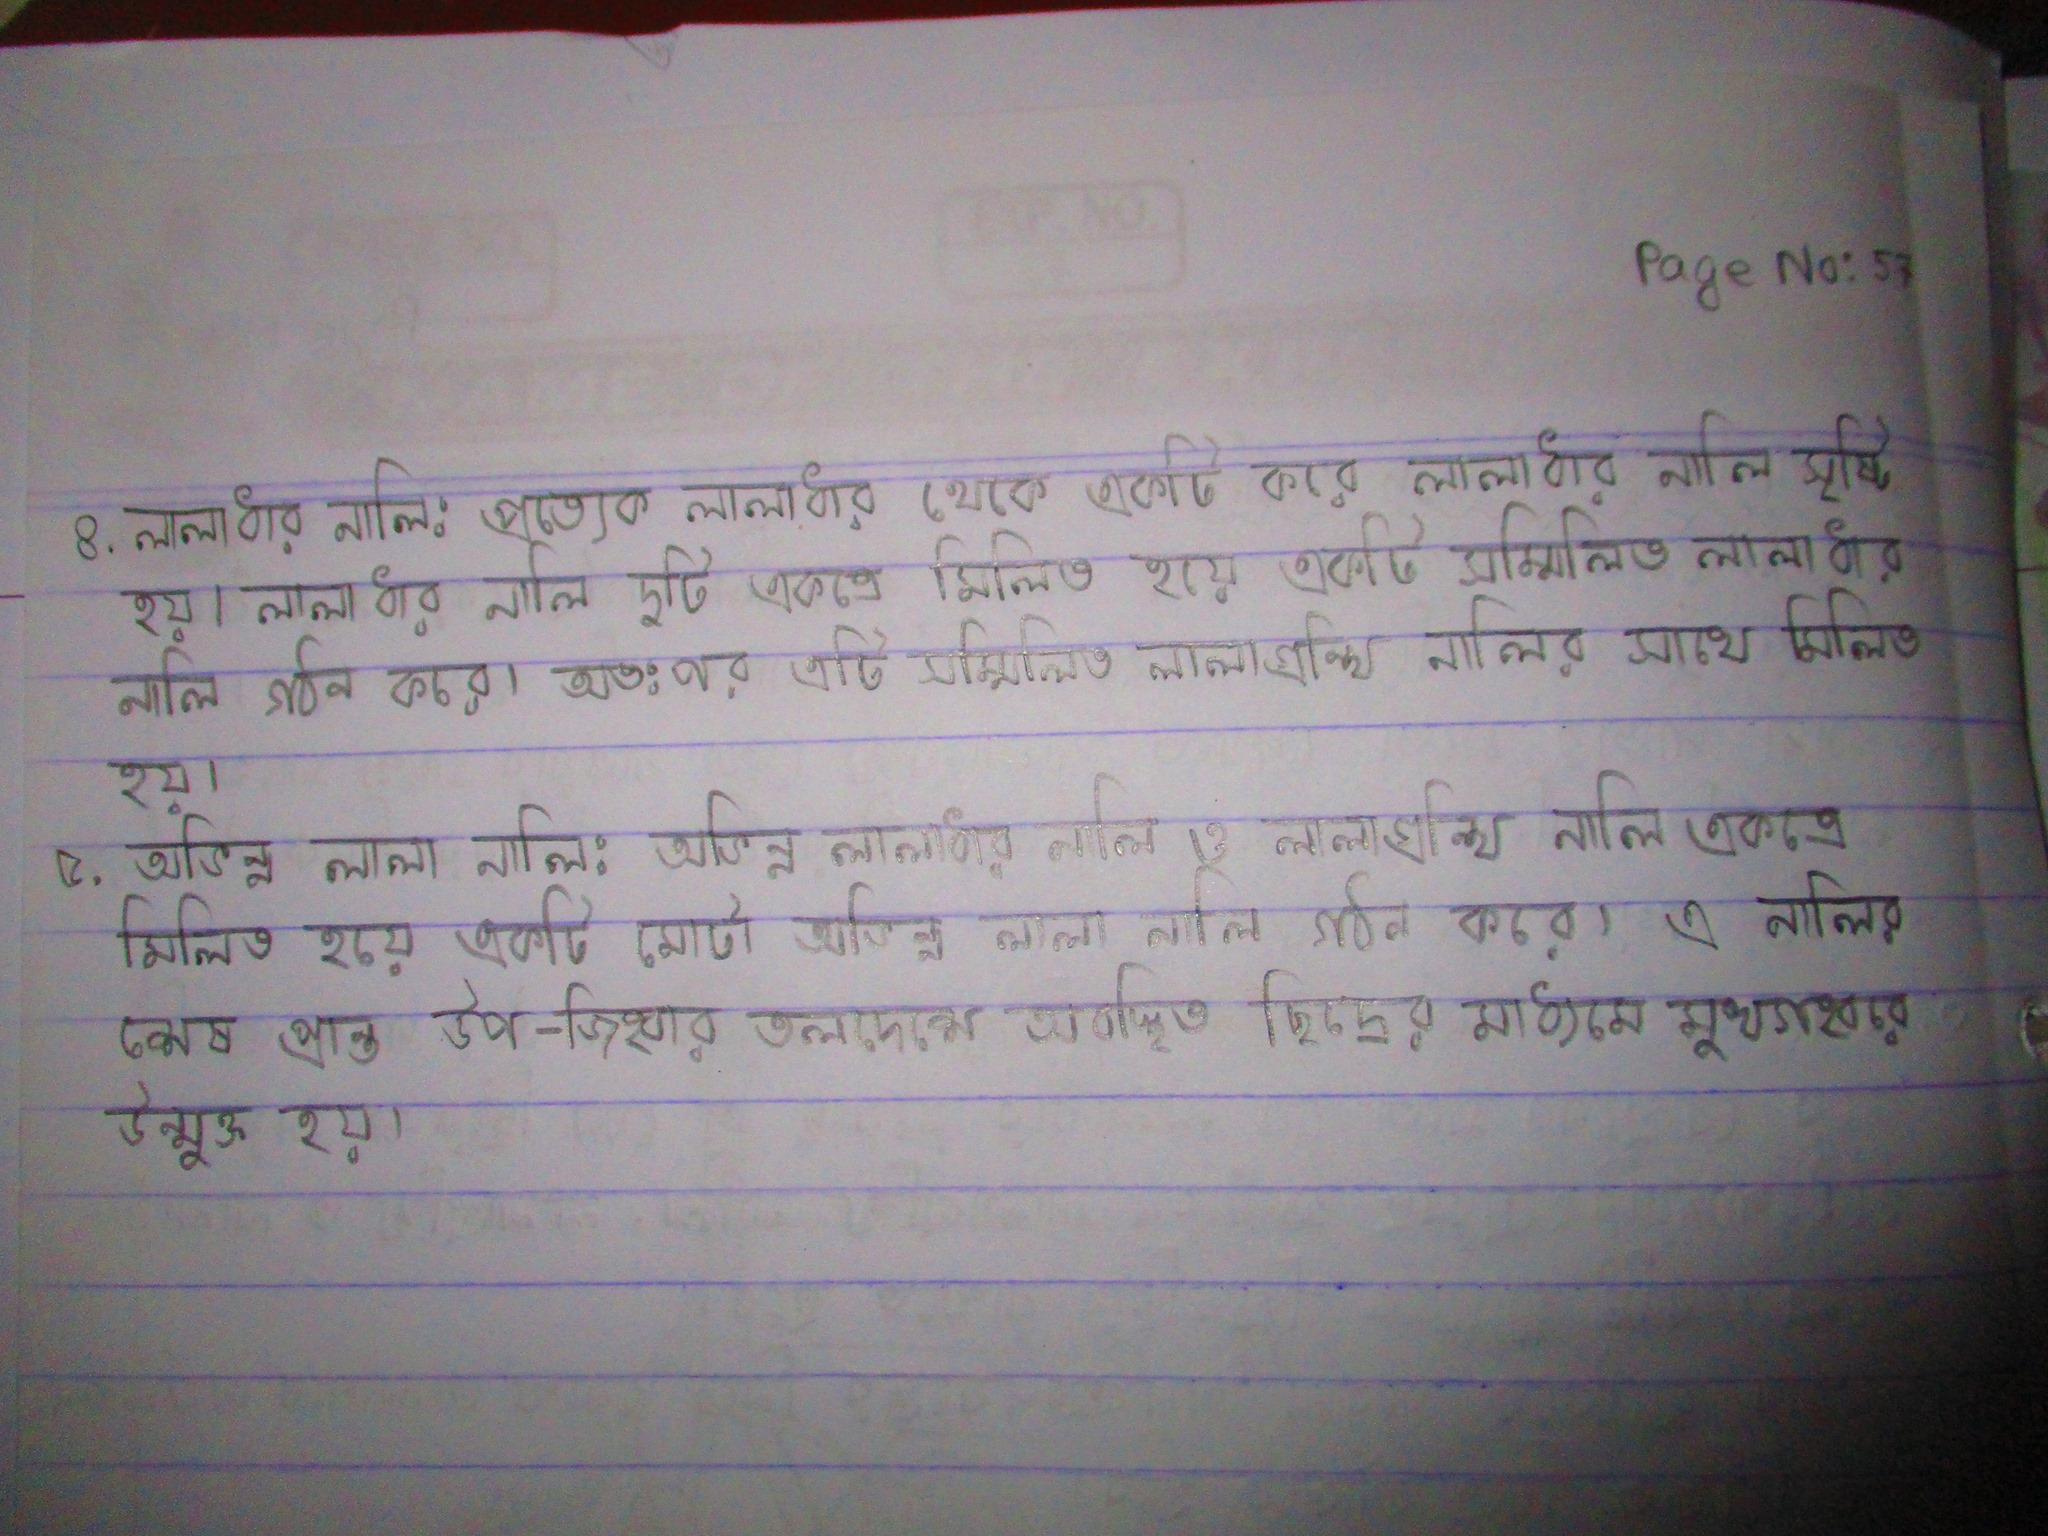 Page No: 57
৪. লালাধার নালিঃ প্রত্যেক লালাধার থেকে একটি করে লালাধার নালি সৃষ্টি
হয়। লালাধার নালি দুটি একত্রে মিলিত হয়ে একটি সম্মিলিত লালাধার
নালি গঠন করে। অতঃপর এটি সম্মিলিত লালাগ্রন্থি নালির সাথে মিলিত
হয়।
৫. অভিন্ন লালা নালিঃ অভিন্ন লালাধার নালি ও লালাগ্রন্থি নালি একত্রে
মিলিত হয়ে একটি মোটা অভিন্ন লালা নালি গঠন করে। এ নালির
শেষ প্রান্ত উপ-জিহ্বার তলদেশে অবস্থিত ছিদ্রের মাধ্যমে মুখগহ্বরে
উন্মুক্ত হয়।